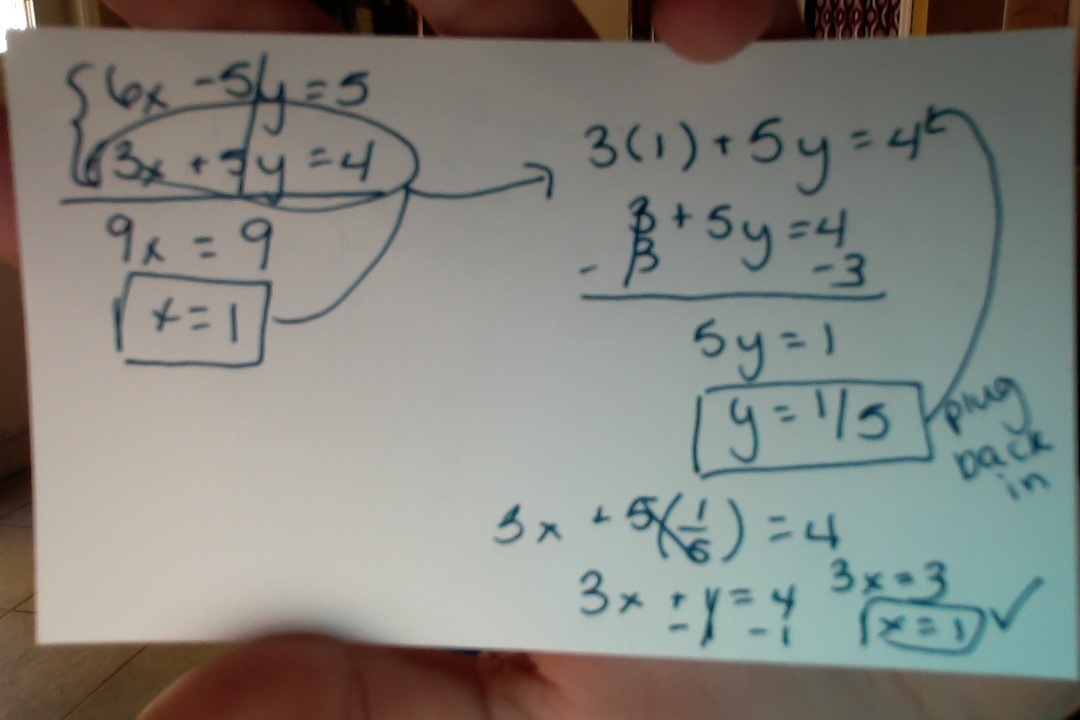 6x - 5y = 5
3x + 5y = 4
9x = 9
x = 1
3(1) + 5y = 4
3 + 5y = 4
- 3 -3
5y = 1
y = 1/5
plug
back
in
3x + 5(1/5) = 4
3x + 1 = 4
- 1 - 1
3x = 3
x = 1 ✓